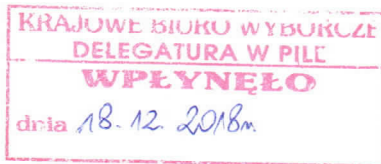 KRAJOWE BIURO WYBORCZE
DELEGATURA W PILE
WPŁYNĘŁO
dnia 18. 12. 2018r.